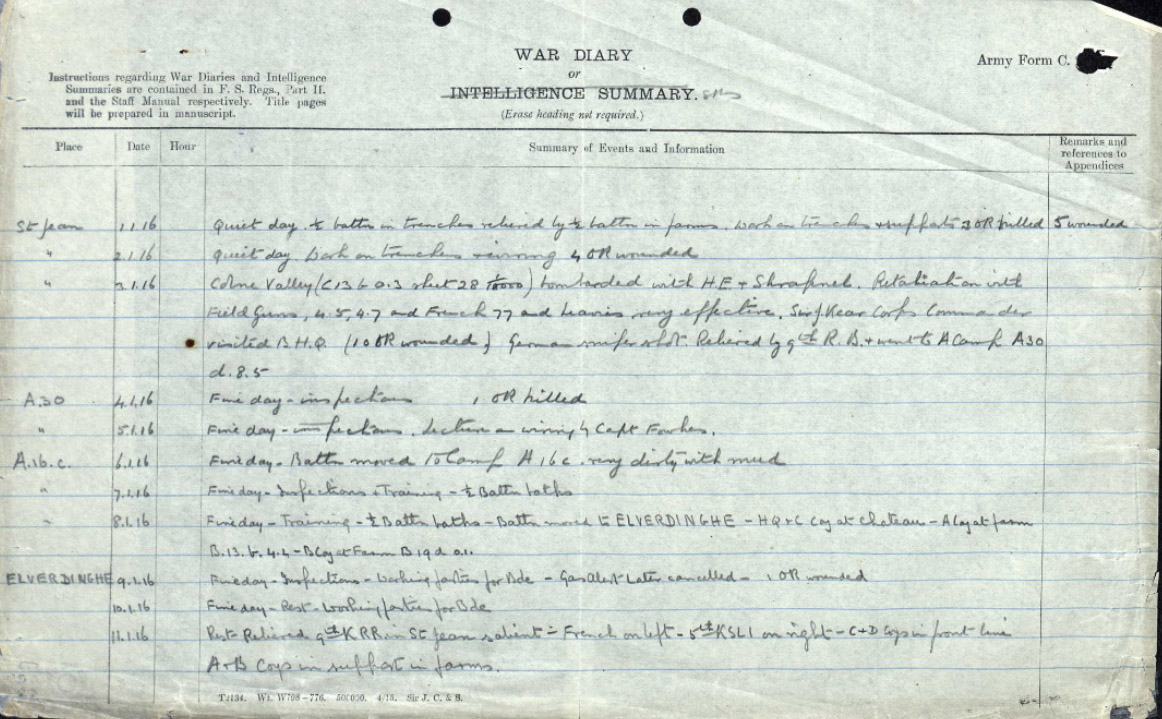 WAR DIARY
or
INTELLIGENCE SUMMARY.
(Erase heading not required.)
Army Form C.
Instructions regarding War Diaries and Intelligence
Summaries are contained in F. S. Regs., Part II.
and the Staff Manual respectively. Title pages
will be prepared in manuscript.
Place Date Hour Summary of Events and Information Remarks and references to Appendices
St Jean 1.1.16 Quiet day. ½ battn in trenches relieved by ½ battn in farms. Work on trenches + supports 3 OR killed 5 wounded
" 2.1.16 Quiet day. Work on trenches + wiring 4 OR wounded
" 3.1.16 Colne Valley (C13 b 0.3 sheet 28 1/10000) bombarded with H.E + Shrapnel. Retaliation with
Field Guns, 4.5, 4.7 and French 77 and heavies very effective. Sir J. Kear Corps Commander
visited B.H.Q. (10 OR wounded) German sniper shot. Relieved by 9th R.B. + went to A Camp A30
d.8.5
A.30 4.1.16 Fine day - inspections 1 OR killed
" 5.1.16 Fine day - inspections. Lecture on wiring by Capt
A.16.c. 6.1.16 Fine day - Battn moved to Camp A16c. very dirty with mud
" 7.1.16 Fine day - Inspections + Training - ½ Battn baths
" 8.1.16 Fine day - Training - ½ Battn baths - Battn moved to ELVERDINGHE - HQ + C Coy at Chateau - A Coy at farm
B.13.b.4.4 - B Coy at Farm B19d 0.1.
ELVERDINGHE 9.1.16 Fine day - Inspections - Working parties for Bde - Gas Alert Later cancelled - 1 OR wounded
10.1.16 Fine day - Rest - Working parties for Bde
11.1.16 Rest - Relieved 9th KRR in St Jean salient - French on left - 5th KSLI on right - C + D Coys in front line
A + B Coys in support in farms.
T2134. Wt. W708-776. 500000. 4/15. Sir J. C. & S.